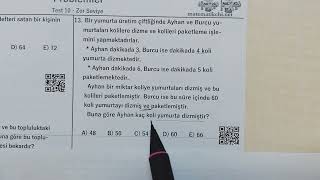 Problemler
Test 10 - Zor Seviye
matematikchi.net
detleri satan bir kişinin
D) 64 E) 12
13. Bir yumurta üretim çiftliğinde Ayhan ve Burcu yu-
murtaları kolilere dizme ve kolileri paketleme işle-
mini yapmaktadırlar.
* Ayhan dakikada 3, Burcu ise dakikada 4 koli
yumurta dizmektedir.
* Ayhan dakikada 6, Burcu ise dakikada 5 koli
paketlemektedir.
Ayhan bir miktar koliye yumurtaları dizmiş ve bu
kolileri paketlemiştir. Burcu ise bu süre içinde 60
koli yumurtayı dizmiş ve paketlemiştir.
Buna göre Ayhan kaç koli yumurta dizmiştir?
A) 48 B) 50 C) 54 D) 60 E) 66
ış ve bu topluluktaki
una göre bu toplu-
bekardır?